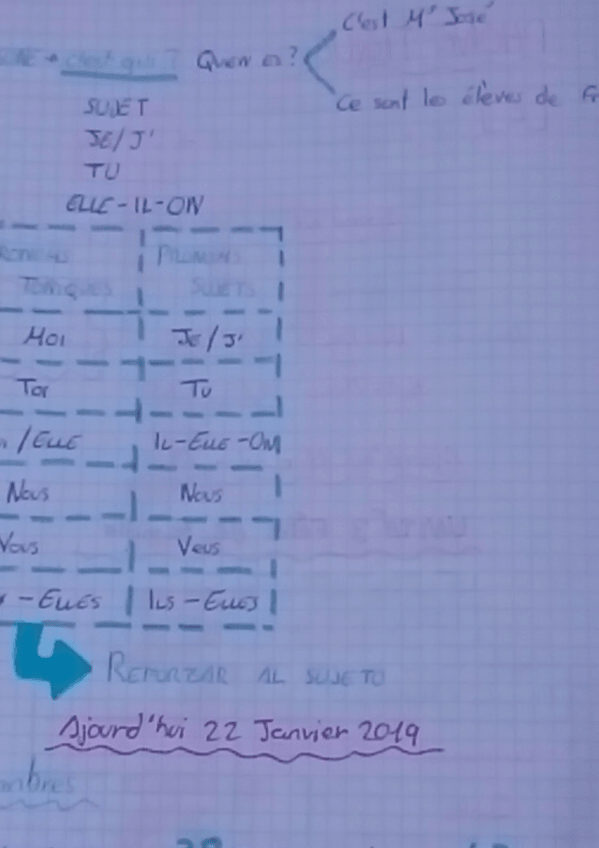 C'est Mª José
c'est qui? Quien es?
Ce sont les élèves de
SUJET
JE/J'
TU
ELLE-IL-ON
TONIQUES SUJETS
MOI JE/J'
TOI TU
/ELLE IL-ELLE-ON
NOUS NOUS
VOUS VOUS
-ELLES ILS-ELLES
REFORZAR AL SUJETO
Ajourd'hui 22 Janvier 2019